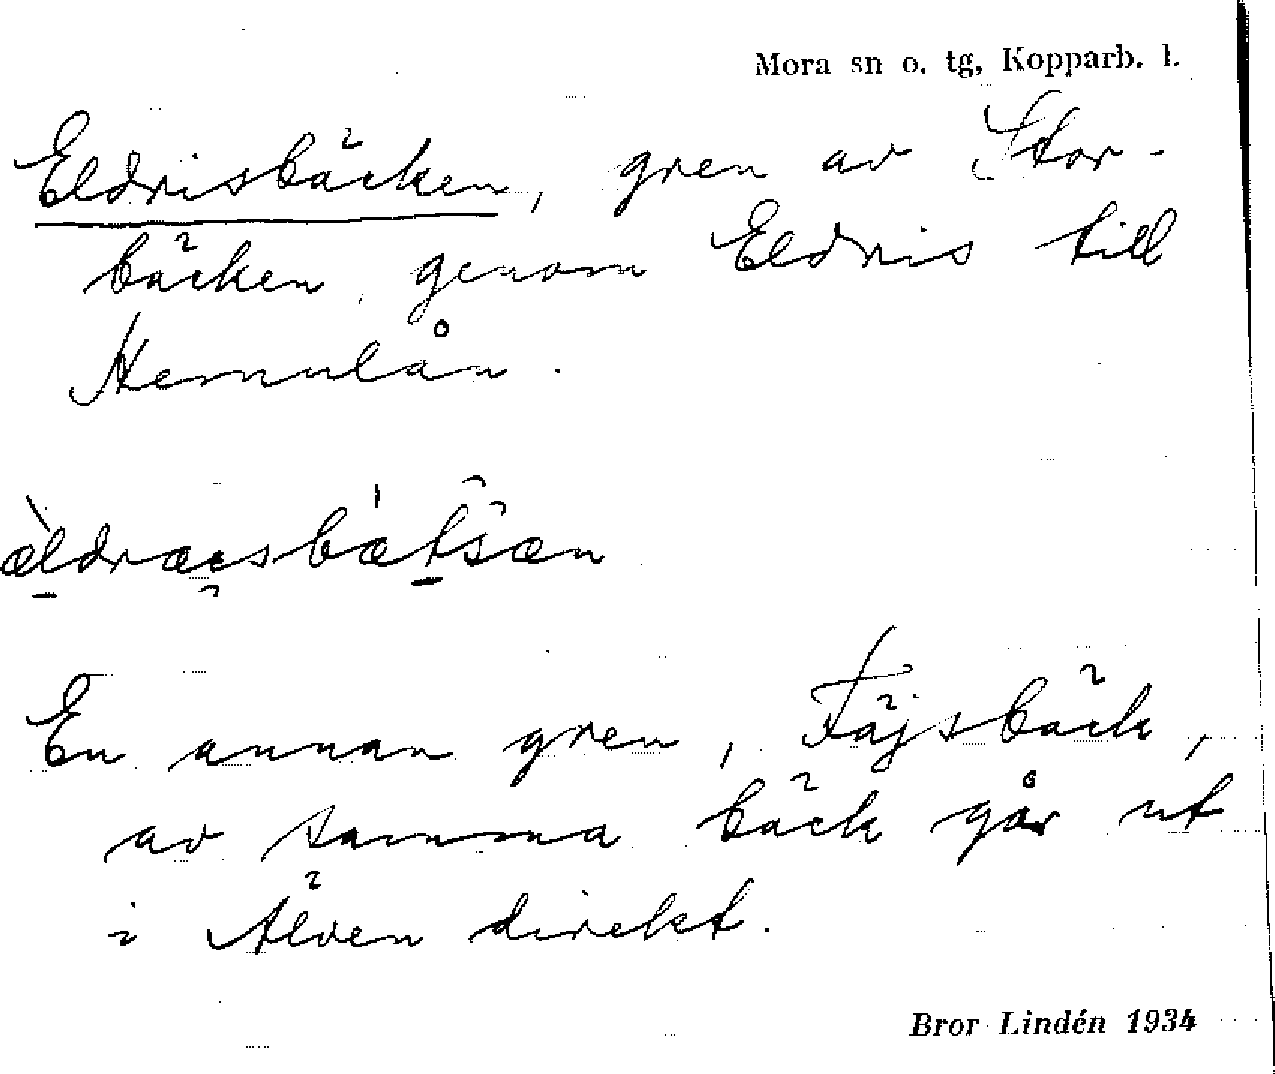 Mora sn o. tg, Kopparb. l.
Eldrisbäcken, gren av Stor-
bäcken, genom Eldris till
Hemulån.
En annan gren, Fäjsbäck,
av samma bäck går ut
i Älven direkt.
Bror Lindén 1934